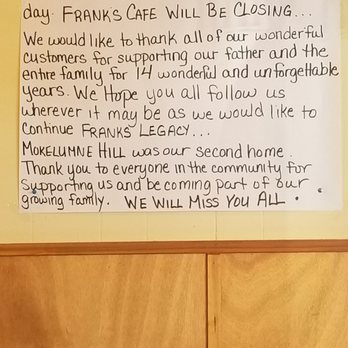 day. FRANK'S CAFE WILL BE CLOSING...
We would like to thank all of our wonderful
customers for supporting our father and the
entire family for 14 wonderful and unforgettable
years. We Hope you all follow us
wherever it may be as we would like to
continue FRANKS LEGACY...
MOKELUMNE HILL was our second home.
Thank you to everyone in the community for
Supporting us and becoming part of our
growing family. WE WILL MISS YOU ALL.